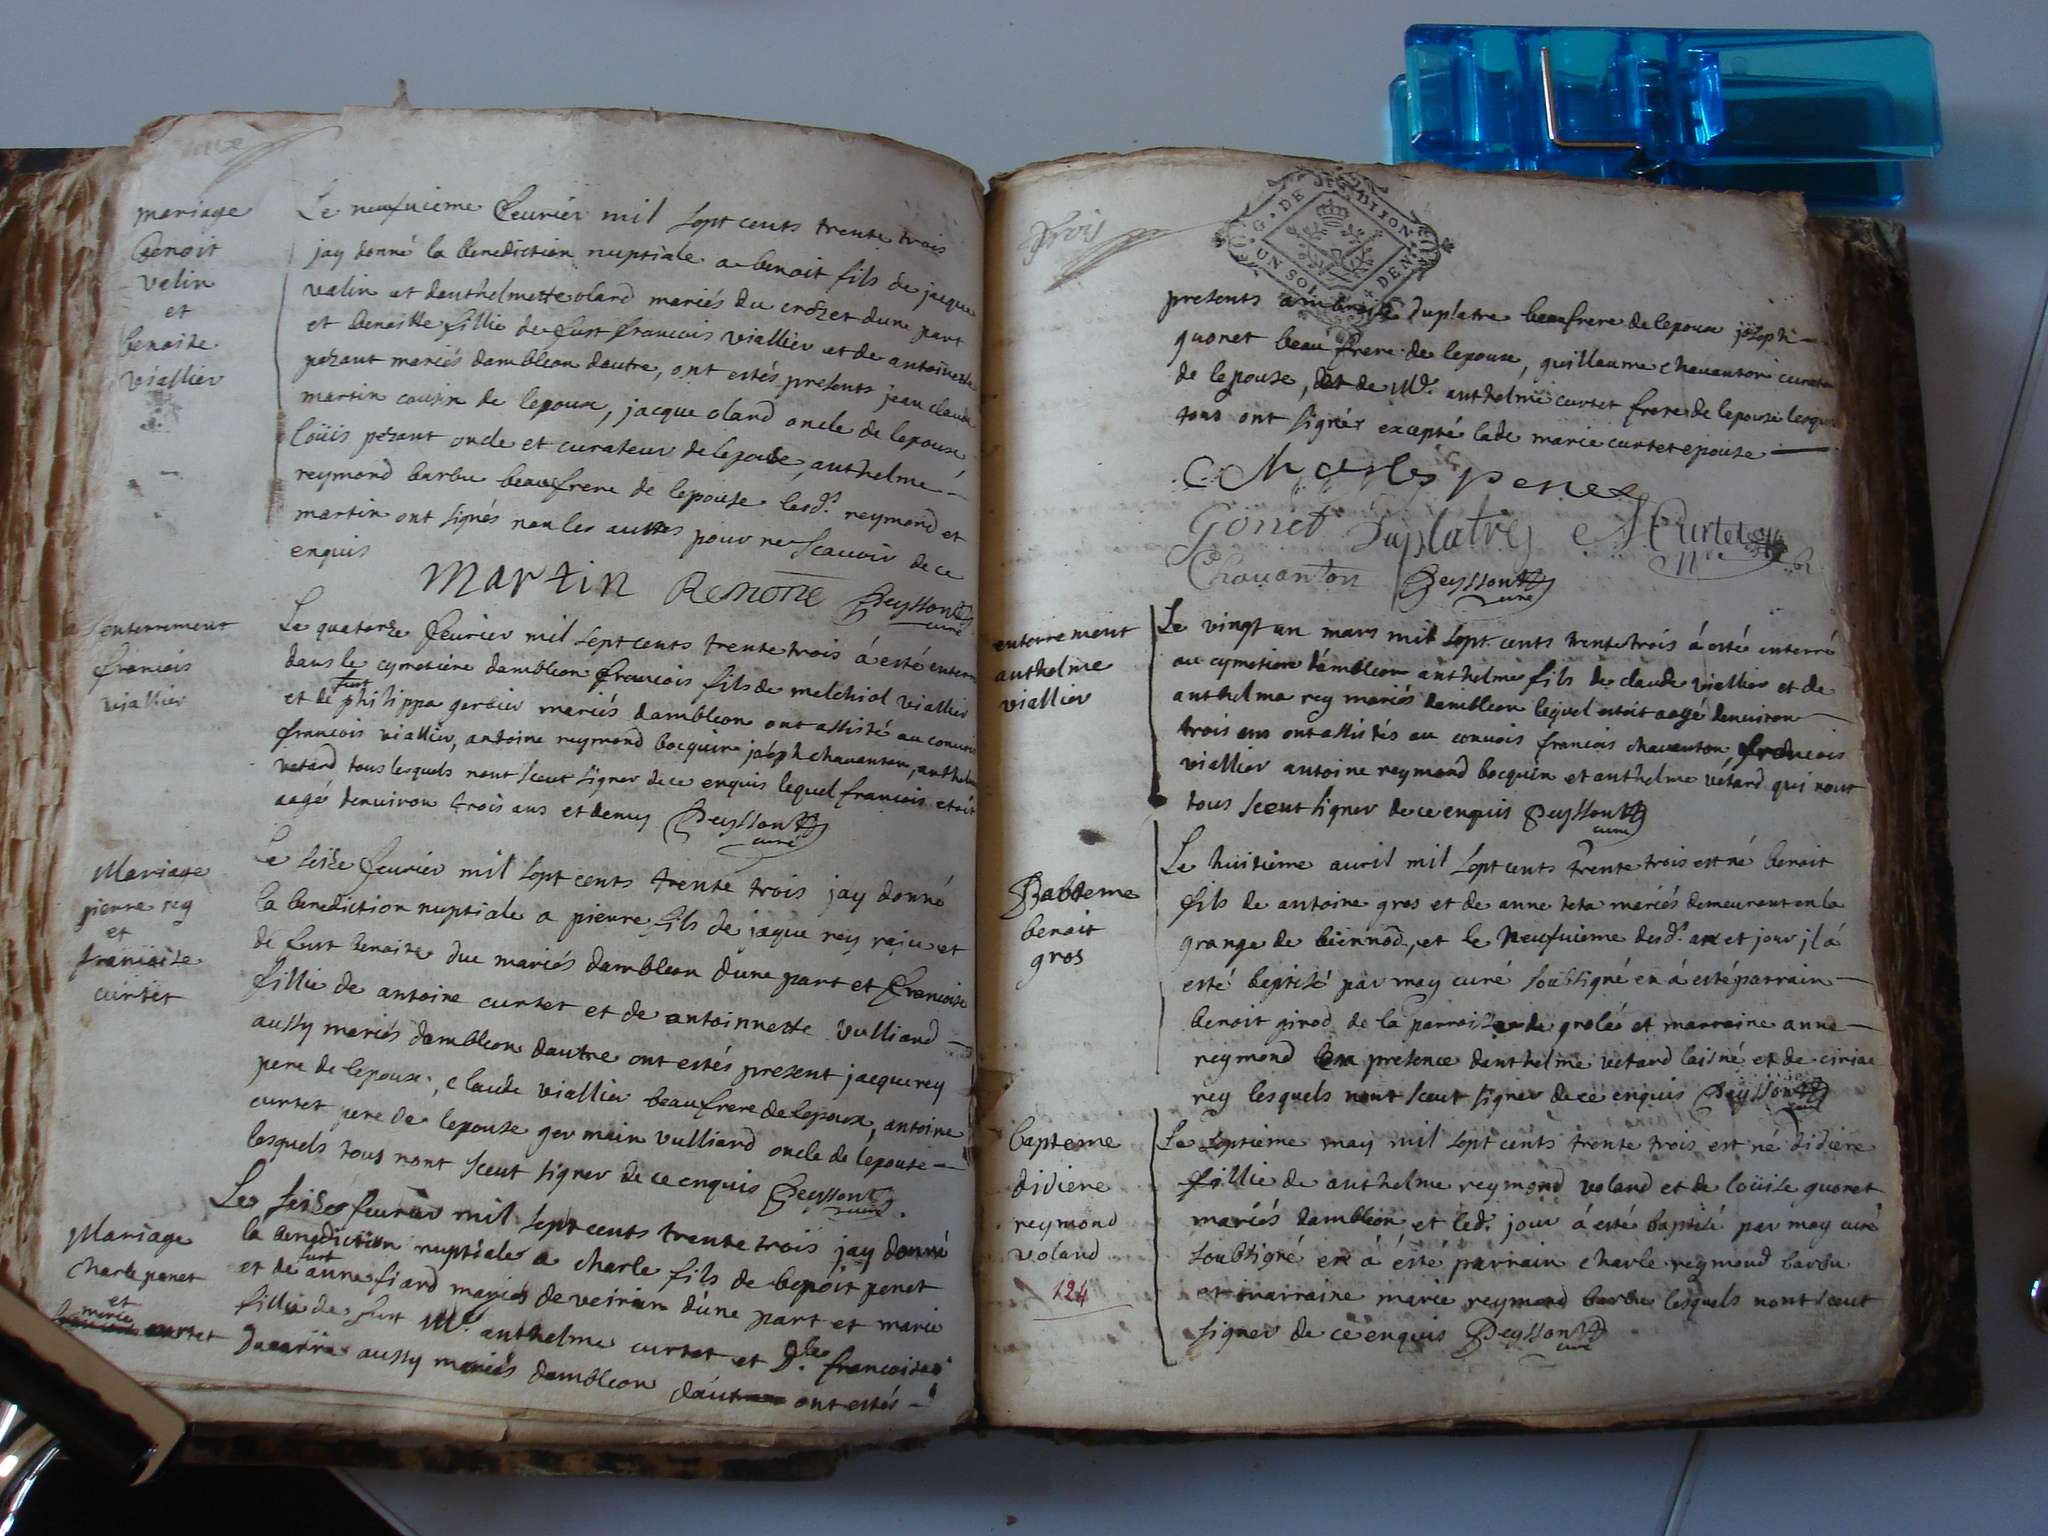 mariage
benoit
velin
et
benoite
viallier
Le neufuieme feurier mil sept cents trente trois
jay donné la benediction nuptiale a benoit fils de jacque
velin et danthelmette oland mariés du crozet dune part
et benoitte fillie de fust francois viallier et de antoinette
pezant mariés dambleon dautre, ont estés presents jean claude
martin cousin de lepoux, jacque oland oncle de lepouse,
loüis pezant oncle et curateur de lepouse, anthelme
reymond barbu beaufrere de lepouse lesd. reymond et
martin ont signés non les auttes pour ne scauoir de ce
enquis
Martin Remone Peysson
curé
enterrement
francois
viallier
Le quatorze feurier mil sept cents trente trois á esté enterre
dans le cymetiere dambleon francois fils de melchiol viallier
et de fust philippa gerbier mariés dambleon ont assisté au conuois
francois viallier, antoine reymond bocquin, joseph chauanton, anthelme
vetard tous lesquels nont sceut signer de ce enquis lequel francois etoit
aagé denuiron trois ans et demy Peysson
curé
Mariage
pierre rey
et
francoise
curtet
Le seize feurier mil sept cents trente trois jay donné
la benediction nuptiale a pierre fils de jaque rey et
de fust benoite duc mariés dambleon dune part et francoise
fillie de antoine curtet et de antoinnette vulliand
aussy mariés dambleon dautre ont estés present jacque rey
pere de lepoux, claude viallier beaufrere de lepoux, antoine
curtet pere de lepouse germain vulliand oncle de lepouse
lesquels tous nont sceut signer de ce enquis Peysson
curé
Mariage
charle penet
et
marie
curtet
Le seize feurier mil sept cents trente trois jay donné
la benediction nuptiale a charle fils de benoit penet
et de fust anne fiard mariés de veirin dune part et marie
fillie de fust Mr. anthelme curtet et Dlle francoise
aussy mariés dambleon dautre ont estés
trois
G. DE DIJON
UN SOL DEN
presents duplatre beaufrere de lepoux joseph
guonet beau frere de lepoux, guillaume chauanton curateur
de lepouse, et de Mr. anthelme curtet frere de lepouse lesquels
tous ont signér excepté lade marie curtet epouse
Charles penet
Gonet Duplatre A Curtet
Chauanton Peysson
curé
enterrement
anthelme
viallier
Le vingt un mars mil sept cents trente trois á esté enterré
au cymetiere dámbleon anthelme fils de claude viallier et de
anthelma rey mariés dambleon lequel estoit aagé denuiron
trois ans ont assistés au conuois francois chauanton, francois
viallier antoine reymond bocquin et anthelme vetard qui nont
tous sceut signer de ce enquis Peysson
curé
Babteme
benoit
gros
Le huitieme auril mil sept cents trente trois est né benoit
fils de antoine gros et de anne teta mariés demeurant en la
grange de biennod, et le neufuieme desd. an et jour jl á
esté baptisé par moy curé soubsigné en á esté parrain
benoit girod de la parroisse de grolée et marraine anne
reymond en presence danthelme vetard laisné et de ciriac
rey lesquels nont sceut signer de ce enquis Peysson
curé
bapteme
didiere
reymond
voland
124
Le septieme may mil sept cents trente trois est né didiere
fillie de anthelme reymond voland et de loüise guonet
mariés dambleon et led. jour á esté baptisé par moy curé
soubsigné en á été parrain charle reymond barbu
et marraine marie reymond barbu lesquels nont sceut
signer de ce enquis Peysson
curé